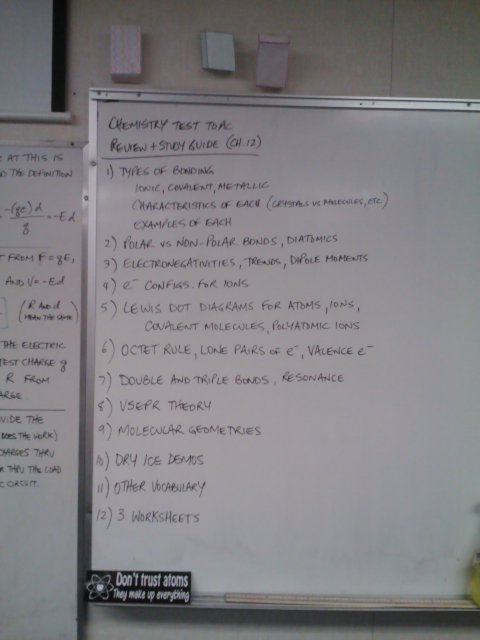 CHEMISTRY TEST TOPIC
REVIEW + STUDY GUIDE (CH.12)
1) TYPES OF BONDING
IONIC, COVALENT, METALLIC
CHARACTERISTICS OF EACH (CRYSTALS VS MOLECULES, ETC.)
EXAMPLES OF EACH
2) POLAR VS NON-POLAR BONDS, DIATOMICS
3) ELECTRONEGATIVITIES, TRENDS, DIPOLE MOMENTS
4) e⁻ CONFIGS. FOR IONS
5) LEWIS DOT DIAGRAMS FOR ATOMS, IONS,
COVALENT MOLECULES, POLYATOMIC IONS
6) OCTET RULE, LONE PAIRS OF e⁻, VALENCE e⁻
7) DOUBLE AND TRIPLE BONDS, RESONANCE
8) VSEPR THEORY
9) MOLECULAR GEOMETRIES
10) DRY ICE DEMOS
11) OTHER VOCABULARY
12) 3 WORKSHEETS
Don't trust atoms
They make up everything
AT THIS IS
THE DEFINITION
-(gE)d
= -Ed
g
FROM F = gE,
AND V = -Ed
(R AND d
MEAN THE SAME)
THE ELECTRIC
TEST CHARGE g
R FROM
THE
DOES THE WORK)
THRU
THRU THE LOAD
CIRCUIT.